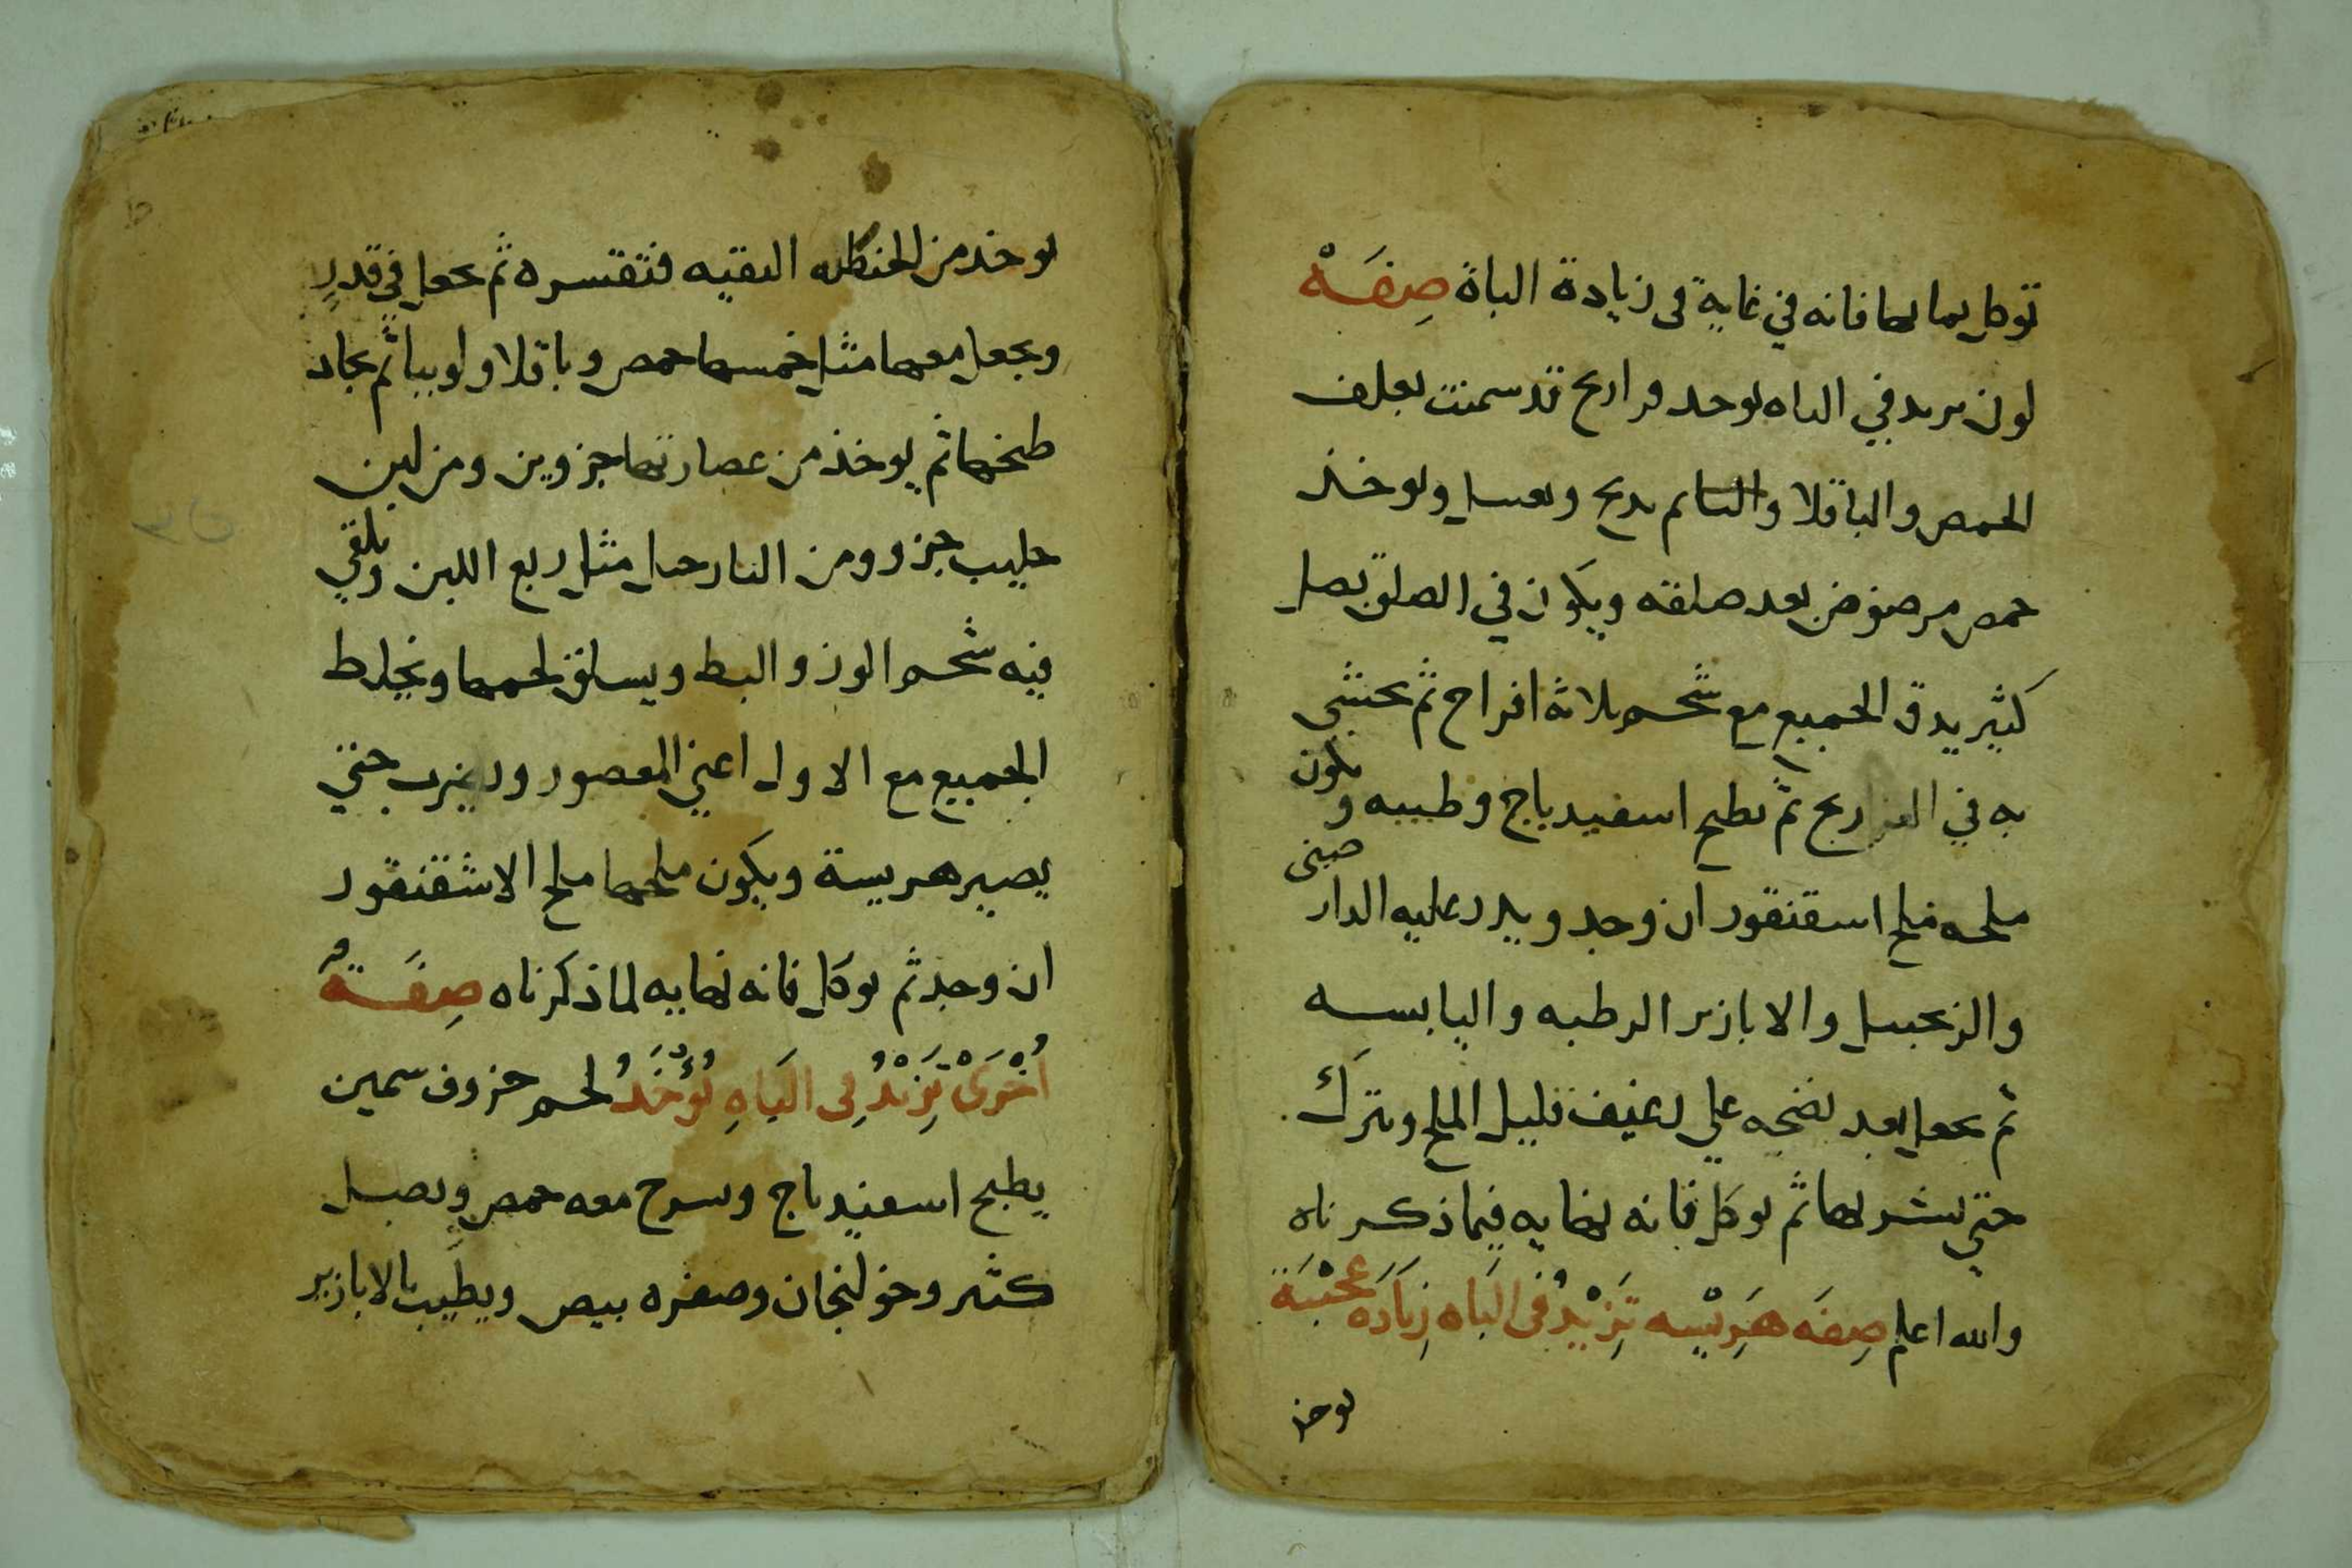 توكل بمايها فانه في غاية فى زيادة الباة صفة
لون يزيد في الباه يوخد فراريج قد سمنت بعلف
الحمص والباقلا واللبا ثم يدبح ويغسل ويوخذ
حمص مرضوض بعد صلقه ويكون في الصلق بصل
كثير يدق الجميع مع شحم ثلاثة افراخ ثم يحشى
به في الفراريج ثم يطبخ اسفيدباج وطيبه ويكون
ملحه ملح اسقنقور ان وجد ويدر عليه الدار صينى
والزنجبيل والابازير الرطبه واليابسه
ثم يجعل بعد نضجه على رغيف قليل الملح ويترك
حتي يشربها ثم يوكل فانه نهايه فيما ذكرناه
والله اعلم صفه هريسه تزيد فى الباه زياده عجيبة
يوخذ
يوخذ من الحنطه النقيه فتقشره ثم يجعل في قدر
ويجعل معها مثل خمسها حمص وباقلا ولوبيا ثم يجاد
طبخها ثم يوخذ من عصارتها جزوين ومن لبن
حليب جزو ومن النارجيل مثل ربع اللبن ويلقي
فيه شحم الوز والبط ويسلق لحمها ويخلط
الجميع مع الاول اعني المعصور ويضرب حتي
يصير هريسة ويكون ملحها ملح الاشقنقور
ان وجد ثم يوكل فانه نهايه لما ذكرناه صفة
اخرى تزيد فى الباه يؤخذ لحم خروف سمين
يطبخ اسفيدباج ويسرح معه حمص وبصل
كثير وخولنجان وصفره بيض ويطيب بالابازير